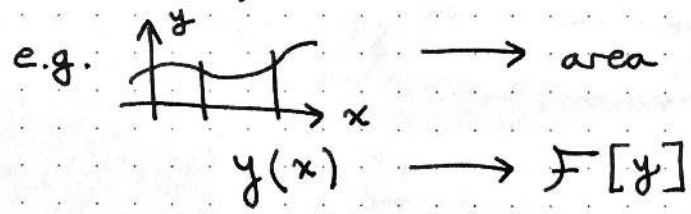 e.g. y x → area
y(x) → F[y]